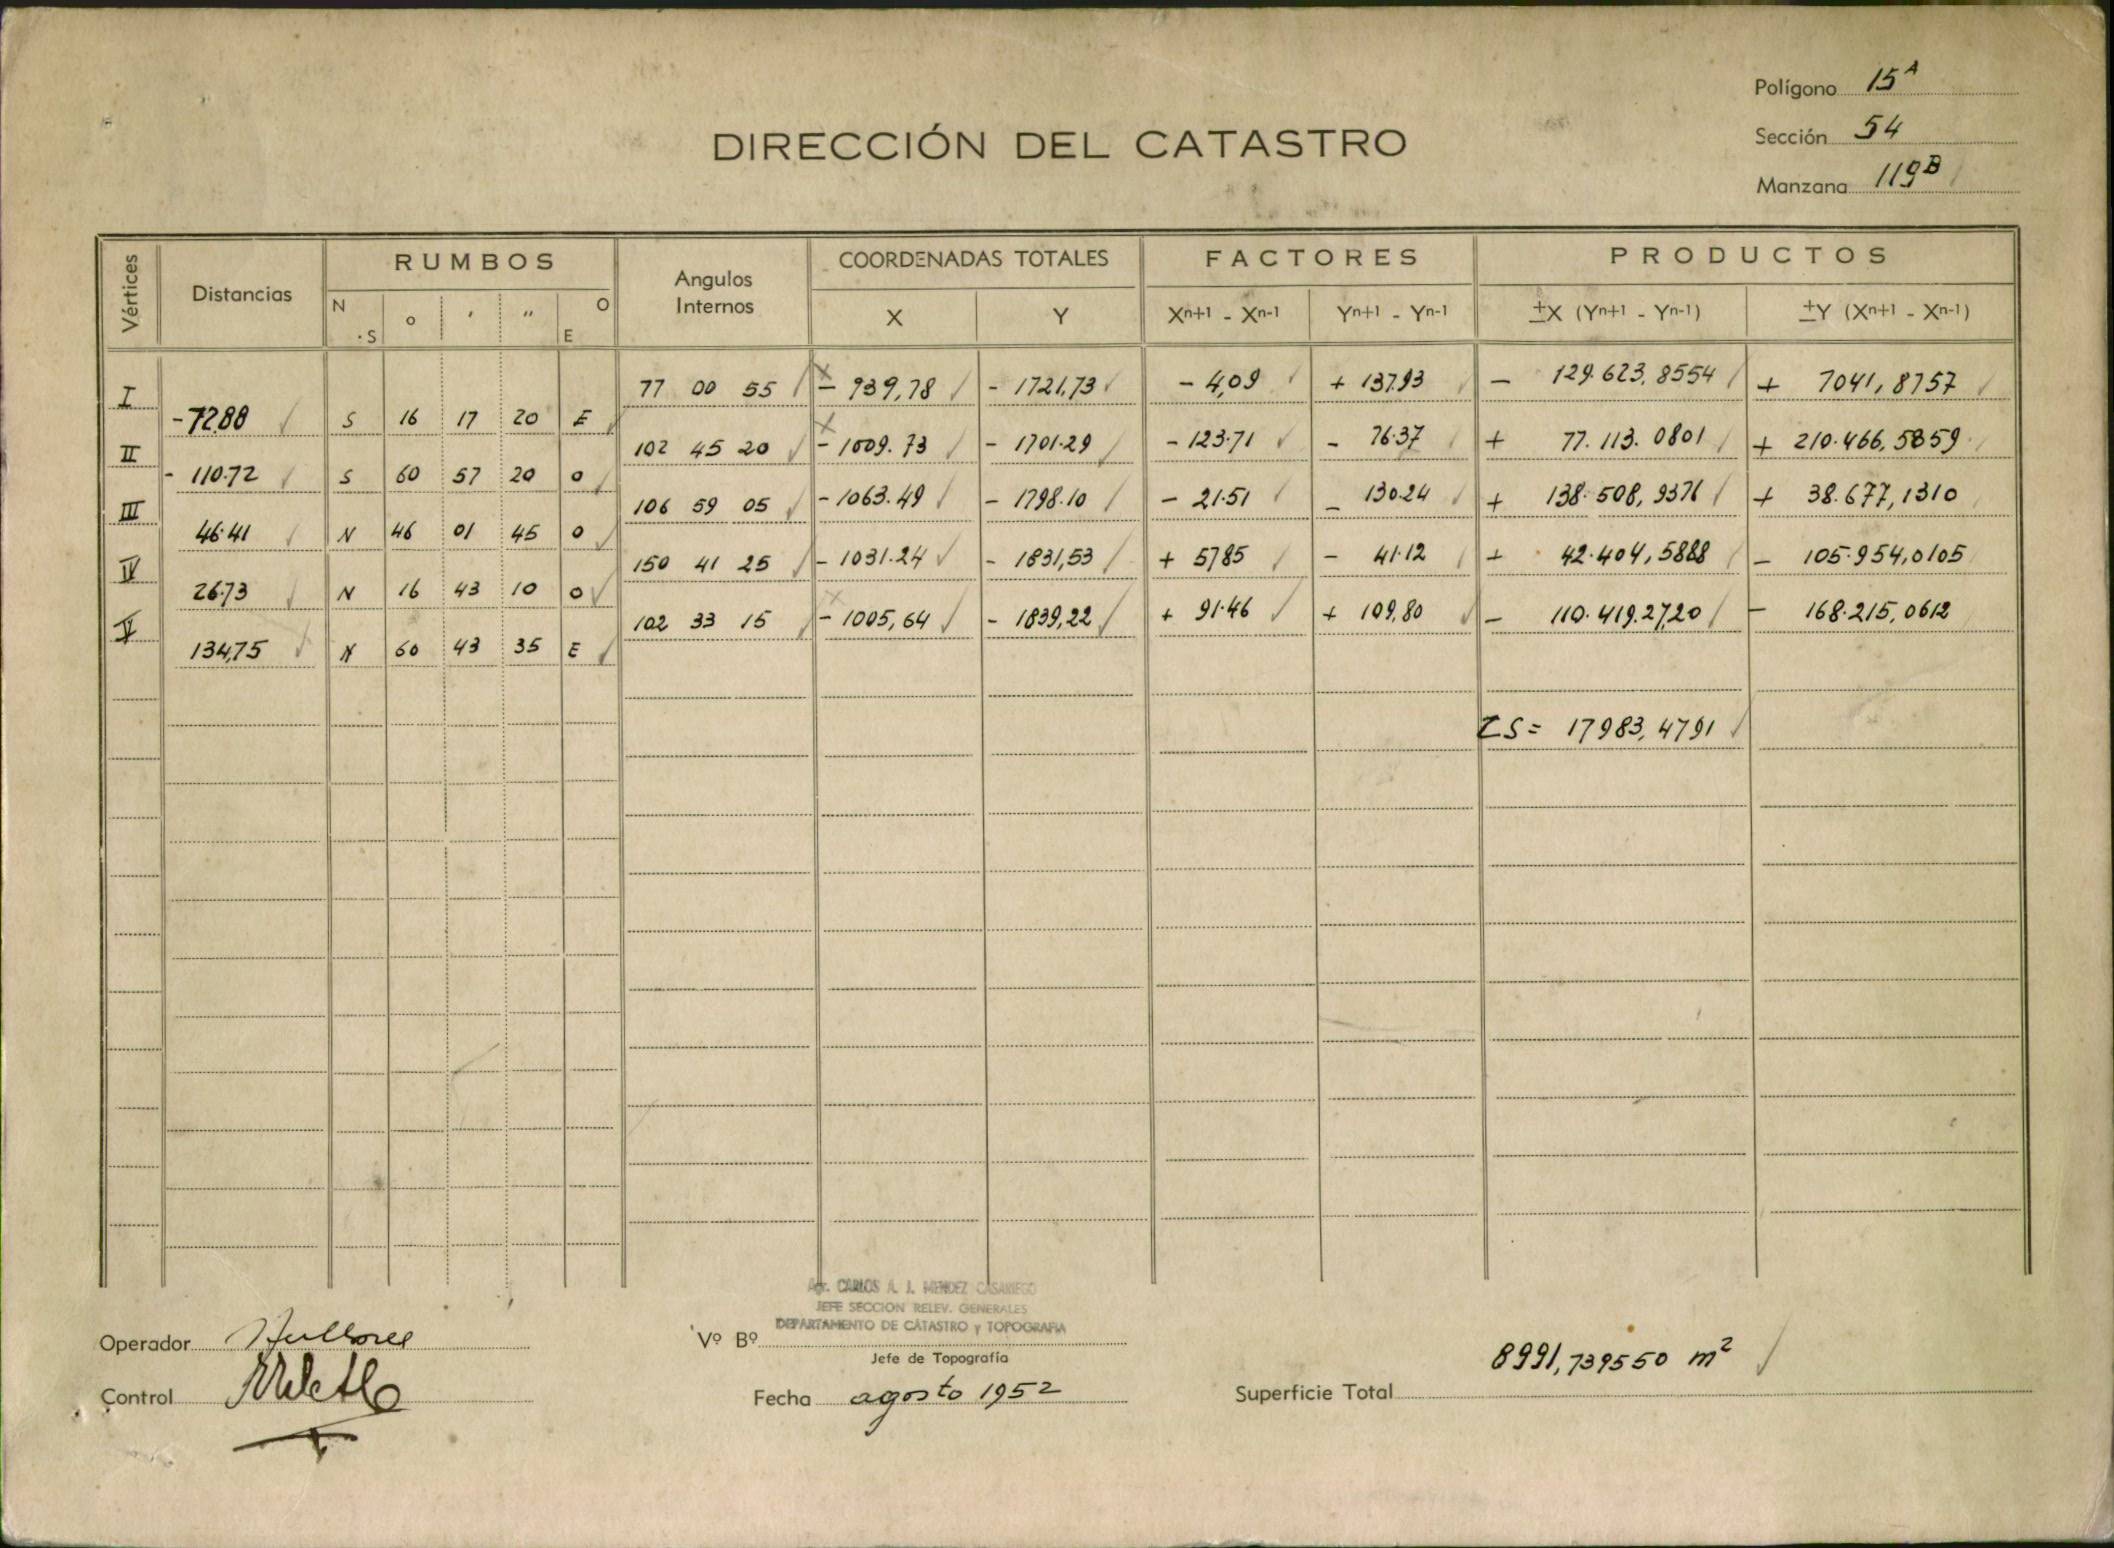 Polígono 15A
DIRECCIÓN DEL CATASTRO
Sección 54
Manzana 119B
Vértices Distancias RUMBOS Angulos Internos COORDENADAS TOTALES FACTORES PRODUCTOS
N S o ' " O E X Y Xn+1 - Xn-1 Yn+1 - Yn-1 ±X (Yn+1 - Yn-1) ±Y (Xn+1 - Xn-1)
I 77 00 55 - 939,78 - 1721,73 - 4,09 + 137.93 - 129.623,8554 + 7041,8757
- 72.88 S 16 17 20 E
II 102 45 20 - 1009.73 - 1701.29 - 123.71 - 76.37 + 77.113.0801 + 210.466,5859
- 110.72 S 60 57 20 O
III 106 59 05 - 1063.49 - 1798.10 - 21.51 - 130.24 + 138.508,9376 + 38.677,1310
46.41 N 46 01 45 O
IV 150 41 25 - 1031.24 - 1831,53 + 57,85 - 41.12 + 42.404,5888 - 105.954,0105
26.73 N 16 43 10 O
V 102 33 15 - 1005,64 - 1839,22 + 91.46 + 109,80 - 110.419.2720 - 168.215,0612
134,75 N 60 43 35 E
ΣS = 17983,4791
Agr. CARLOS A. J. MENDEZ CASARIEGO
JEFE SECCION RELEV. GENERALES
DEPARTAMENTO DE CATASTRO y TOPOGRAFIA
Operador
Vº Bº
Jefe de Topografía
8991,739550 m2
Control
Fecha agosto 1952
Superficie Total